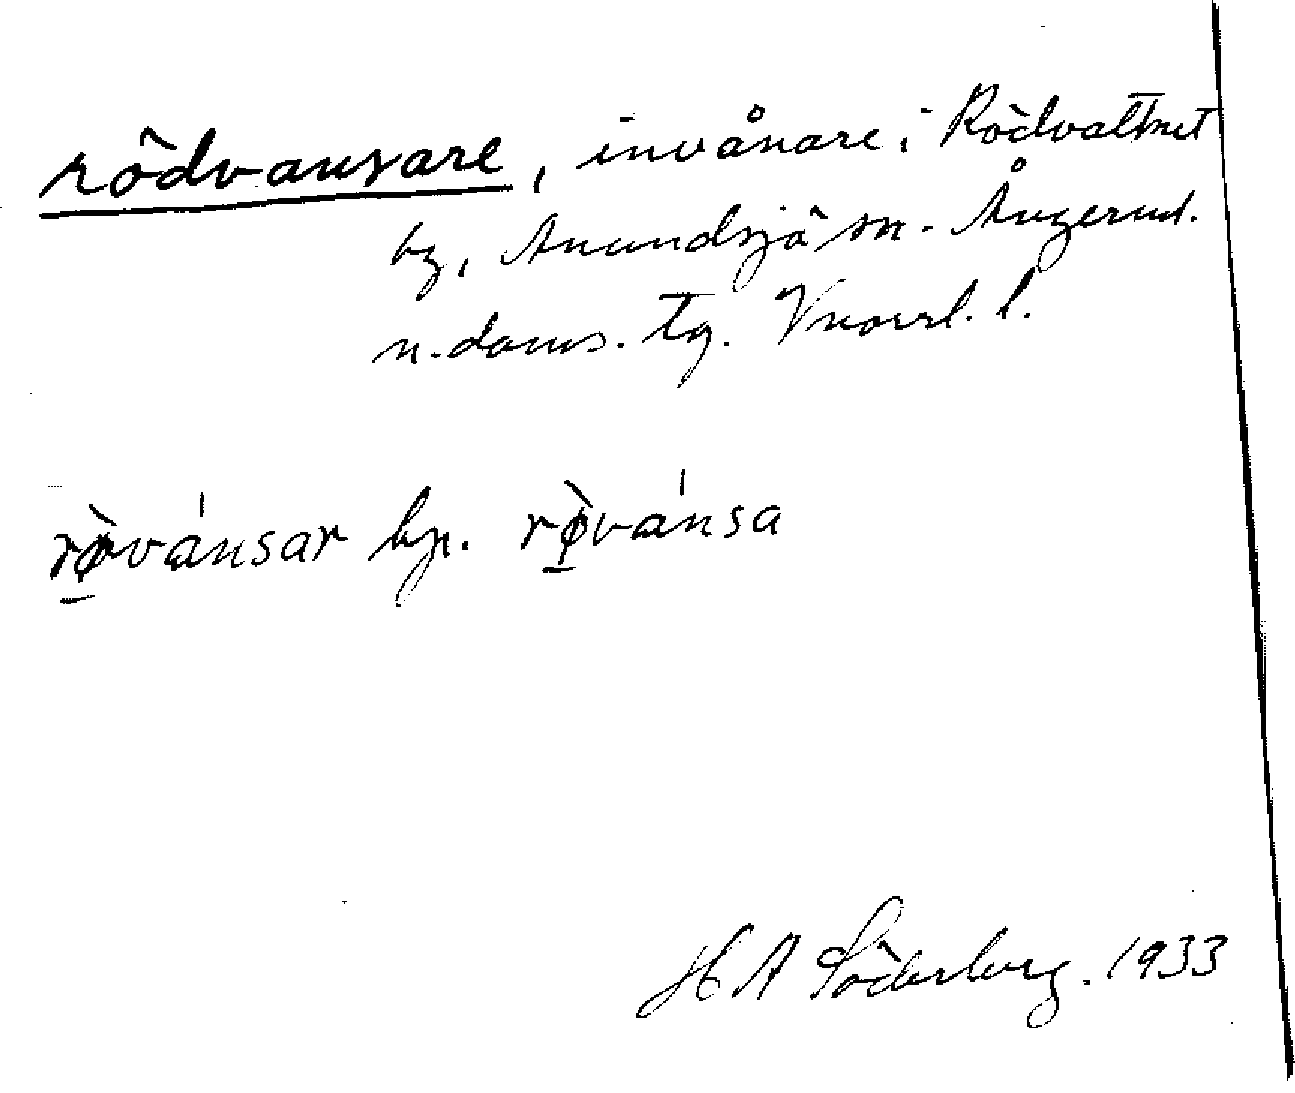 rödvansare, invånare i Rödvattnet
by, Anundsjö sn. Ångerml.
n. doms. tg. Vnorrl. l.
rø̀vánsar bp. rø̀vánsa
H A Söderberg. 1933